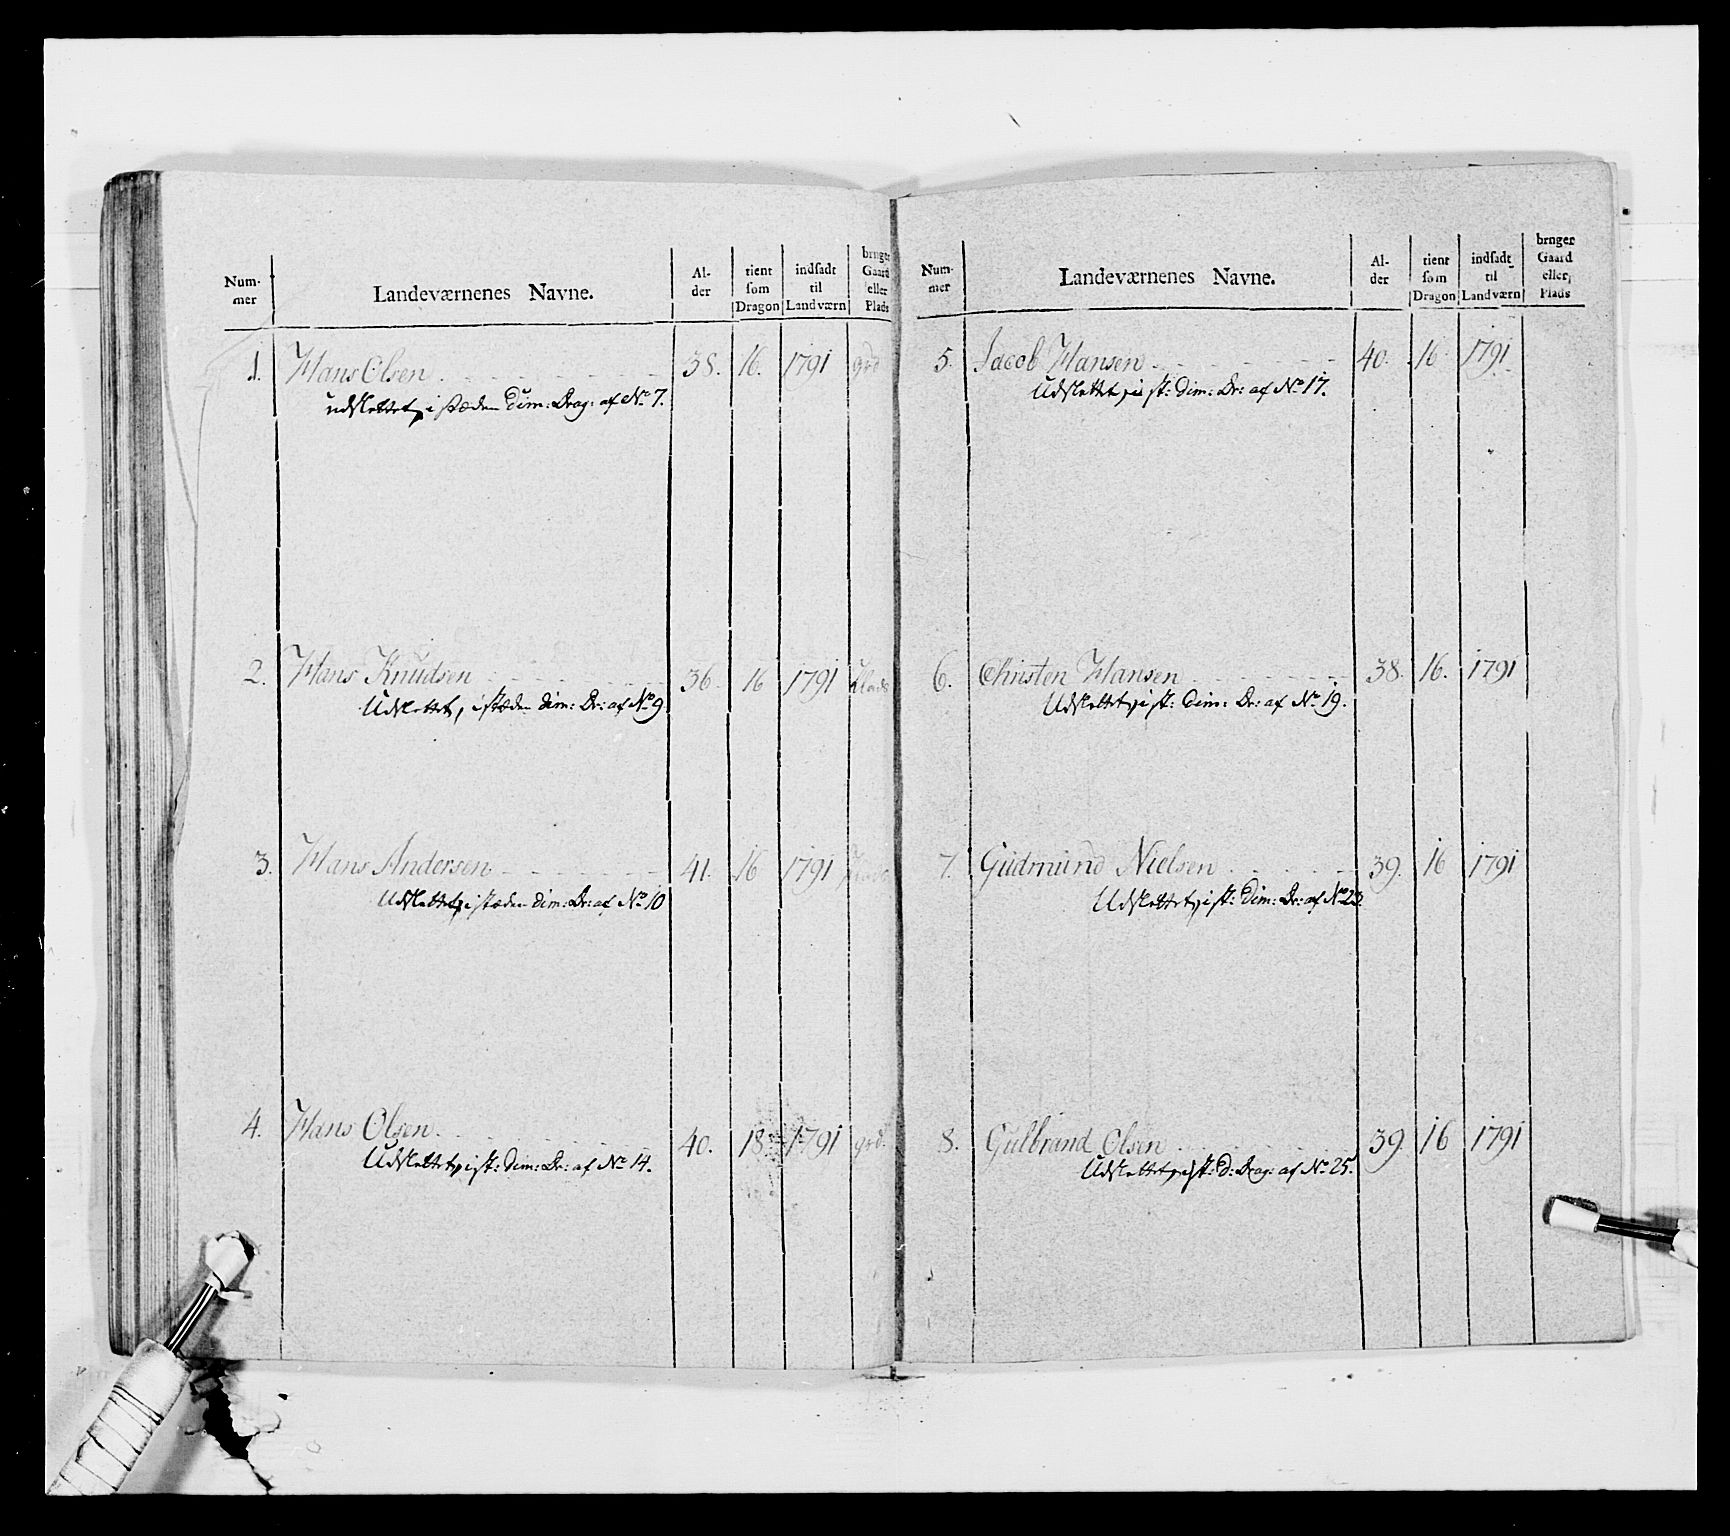 Num-
mer
Landeværnenes Navne.
Al-
der
tient
som
Dragon
indsadt
til
Landværn
bruger
Gaard
eller
Plads
1. Hans Olsen 38. 16. 1791 grd
udslettet, i stæden dim: Drag: af No 7.
2. Hans Knudsen 36 16 1791 Plads
Udslettet, i stæden dim: Dr: af No 9
3. Hans Andersen 41. 16 1791 Plads
Udslettet, i stæden dim: Dr: af No 10
4. Hans Olsen 40. 18 1791 grd.
Udslettet, i st: dim: Dr: af No 14.
Num-
mer
Landeværnenes Navne.
Al-
der
tient
som
Dragon
indsadt
til
Landværn
bruger
Gaard
eller
Plads
5. Jacob Hansen 40. 16 1791.
Udslettet, i st: dim: Dr: af No 17.
6. Christen Hansen 38. 16. 1791
Udslettet, i st: dim: Dr: af No 19.
7. Gudmund Nielsen 39. 16 1791
Udslettet, i st: dim: Dr: af No 23.
8. Gulbrand Olsen 39. 16 1791
Udslettet, i st: d: Drag: af No 25.